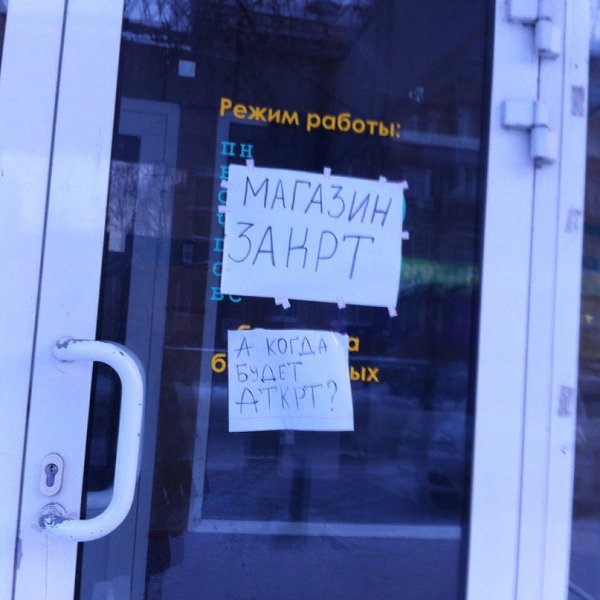 Режим работы:
пн
МАГАЗИН
ЗАКРТ
вс
А КОГДА
БУДЕТ
АТКРТ?